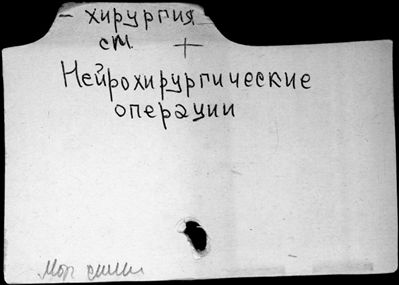 – хирургия
см. +
Нейрохирургические
операции